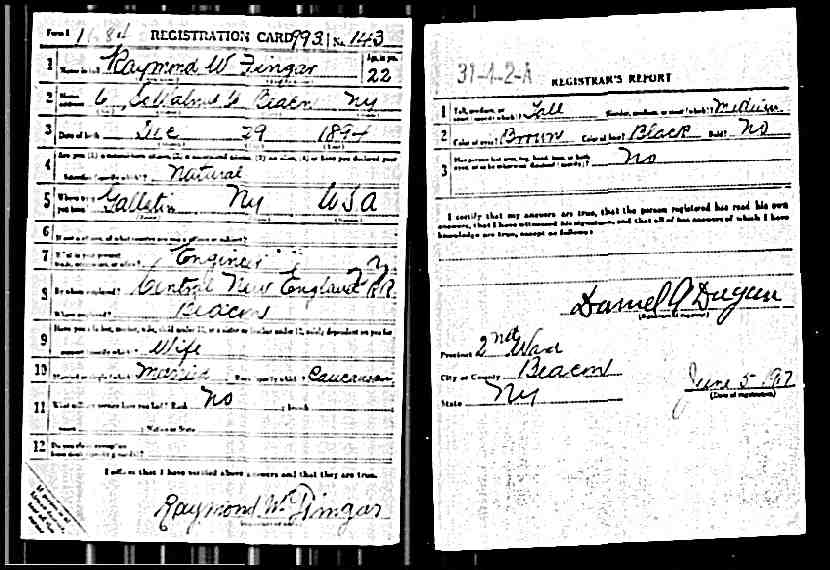 Form 1 1684 REGISTRATION CARD 993 No. 143
1 Name in full Raymond W Fingar Age, in yrs. 22
2 Home address 6 Beacn Ny
3 Date of birth Dec 29 1894
4 Are you (1) a natural-born citizen, (2) a naturalized citizen, (3) an alien, (4) or have you declared your
intention (specify which)? Natural
5 Where were you born? Gallatin Ny USA
6 If not a citizen, of what country are you a citizen or subject?
7 What is your present trade, occupation, or office? Engineer
8 By whom employed? Central New England RR
Where employed? Beacon
9 Have you a father, mother, wife, child under 12, or a sister or brother under 12, solely dependent on you for
support (specify which)? Wife
10 Married or single (which)? Married Race (specify which)? Caucasian
11 What military service have you had? Rank No ; branch
years ; Nation or State
12 Do you claim exemption from draft (specify grounds)?
I affirm that I have verified above answers and that they are true.
Raymond Wm Fingar
31-1-2-A REGISTRAR'S REPORT
1 Tall, medium, or short (specify which)? Tall Slender, medium, or stout (which)? Medium
2 Color of eyes? Brown Color of hair? Black Bald? No
3 Has person lost arm, leg, hand, foot, or both eyes, or is he otherwise disabled (specify)? No
I certify that my answers are true, that the person registered has read his own
answers, that I have witnessed his signature, and that all of his answers of which I have
knowledge are true, except as follows:
Daniel A Dugan
(Signature of registrar)
Precinct 2nd Ward
City or County Beacon
State Ny
June 5 1917
(Date of registration)